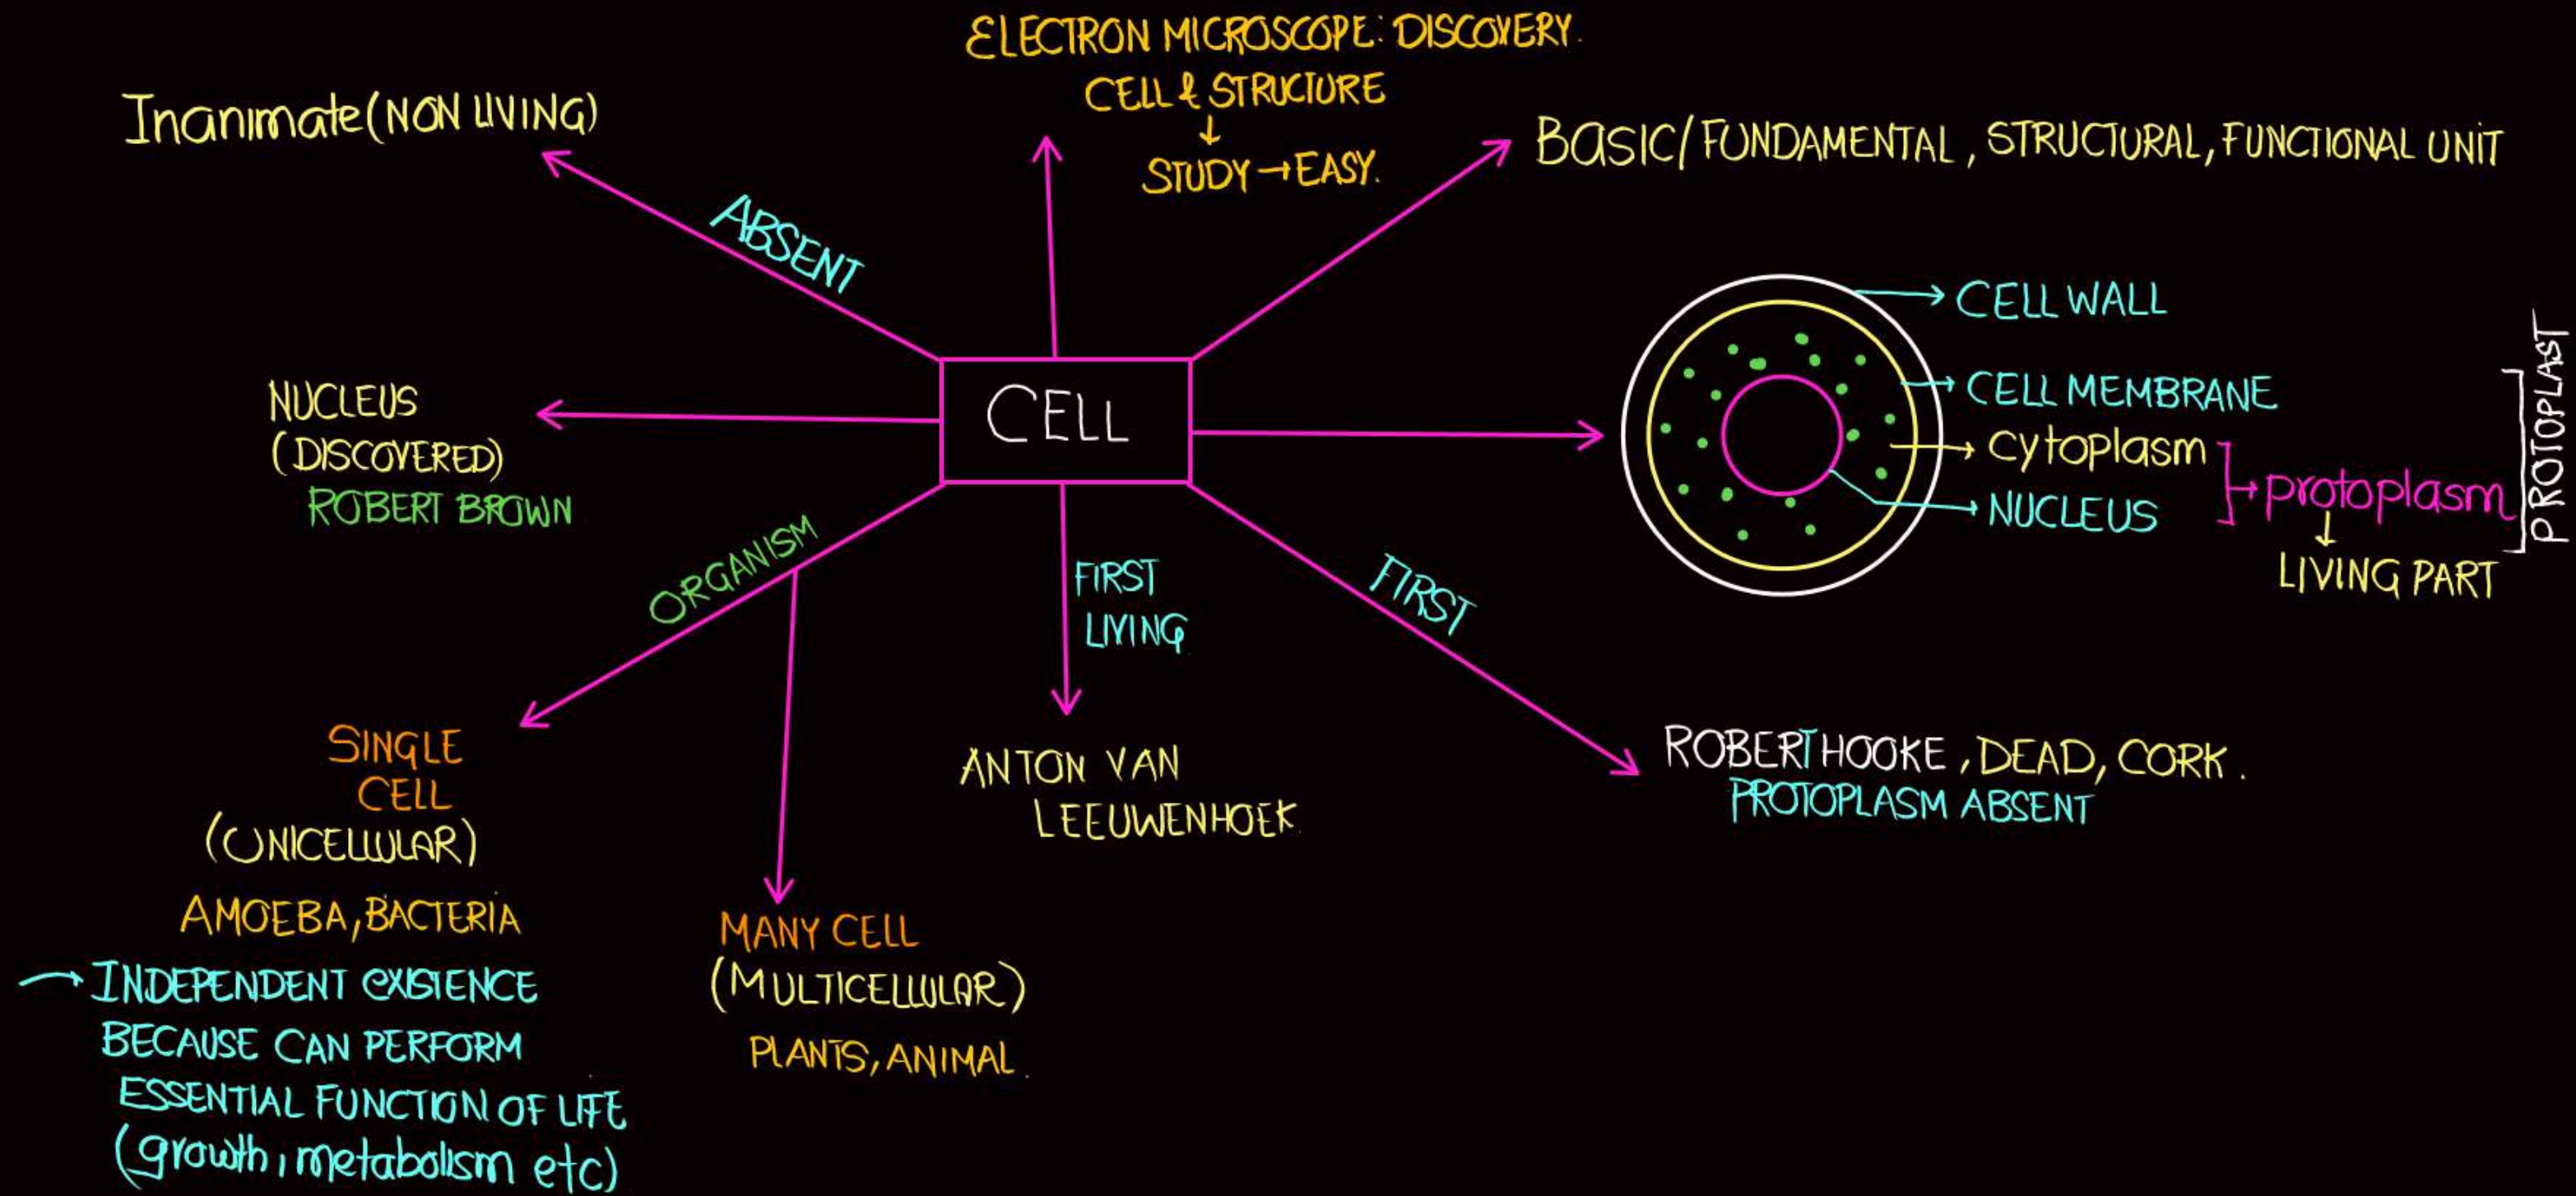 ELECTRON MICROSCOPE: DISCOVERY.
CELL & STRUCTURE
↓
STUDY → EASY.
Inanimate (NON LIVING)
BASIC/FUNDAMENTAL, STRUCTURAL, FUNCTIONAL UNIT
ABSENT
CELL WALL
CELL MEMBRANE
Cytoplasm
NUCLEUS
protoplasm
↓
LIVING PART
PROTOPLAST
NUCLEUS
(DISCOVERED)
ROBERT BROWN
CELL
ORGANISM
FIRST
LIVING
FIRST
SINGLE
CELL
(UNICELLULAR)
AMOEBA, BACTERIA
→ INDEPENDENT EXISTENCE
BECAUSE CAN PERFORM
ESSENTIAL FUNCTION OF LIFE
(growth, metabolism etc)
MANY CELL
(MULTICELLULAR)
PLANTS, ANIMAL.
ANTON VAN
LEEUWENHOEK
ROBERT HOOKE, DEAD, CORK.
PROTOPLASM ABSENT